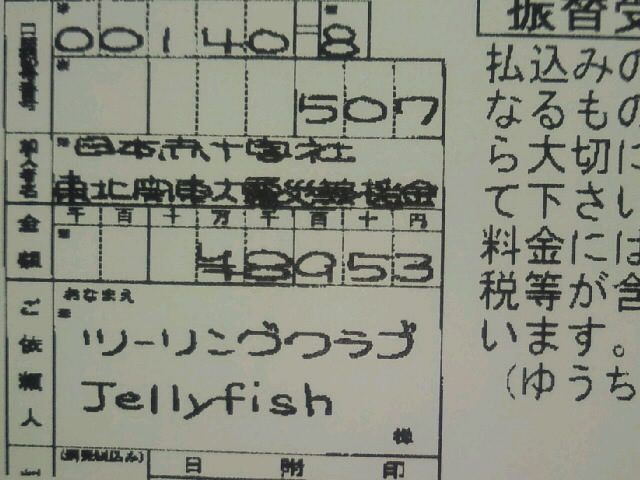 00140-8
507
日本赤十字社
東北関東大震災義援金
金額
千百十万千百十円
48953
おなまえ
ご依頼人
ツーリングクラブ
Jellyfish
様
日附印
振替受
払込みの
なるもの
ら大切に
て下さい
料金には
税等が含
います。
(ゆうち